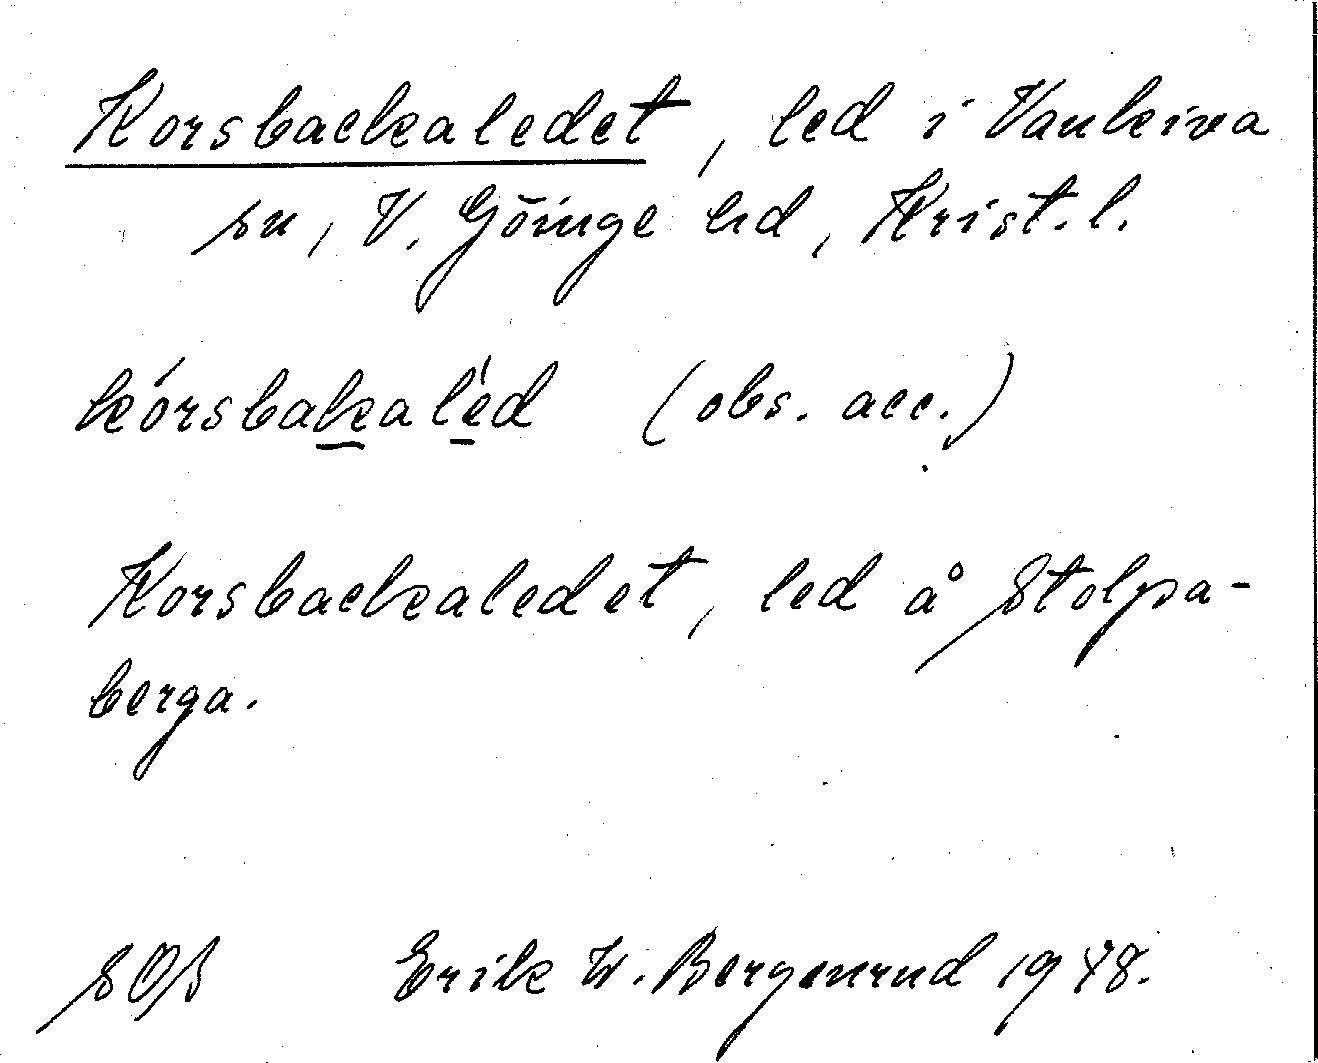 Korsbackaledet, led i Vankiva
sn, V. Göinge hd, Krist. l.
kórsbakaléd (obs. acc.)
Korsbackaledet, led å Stolpa-
berga.
SOS Erik W. Bergenrud 1948.